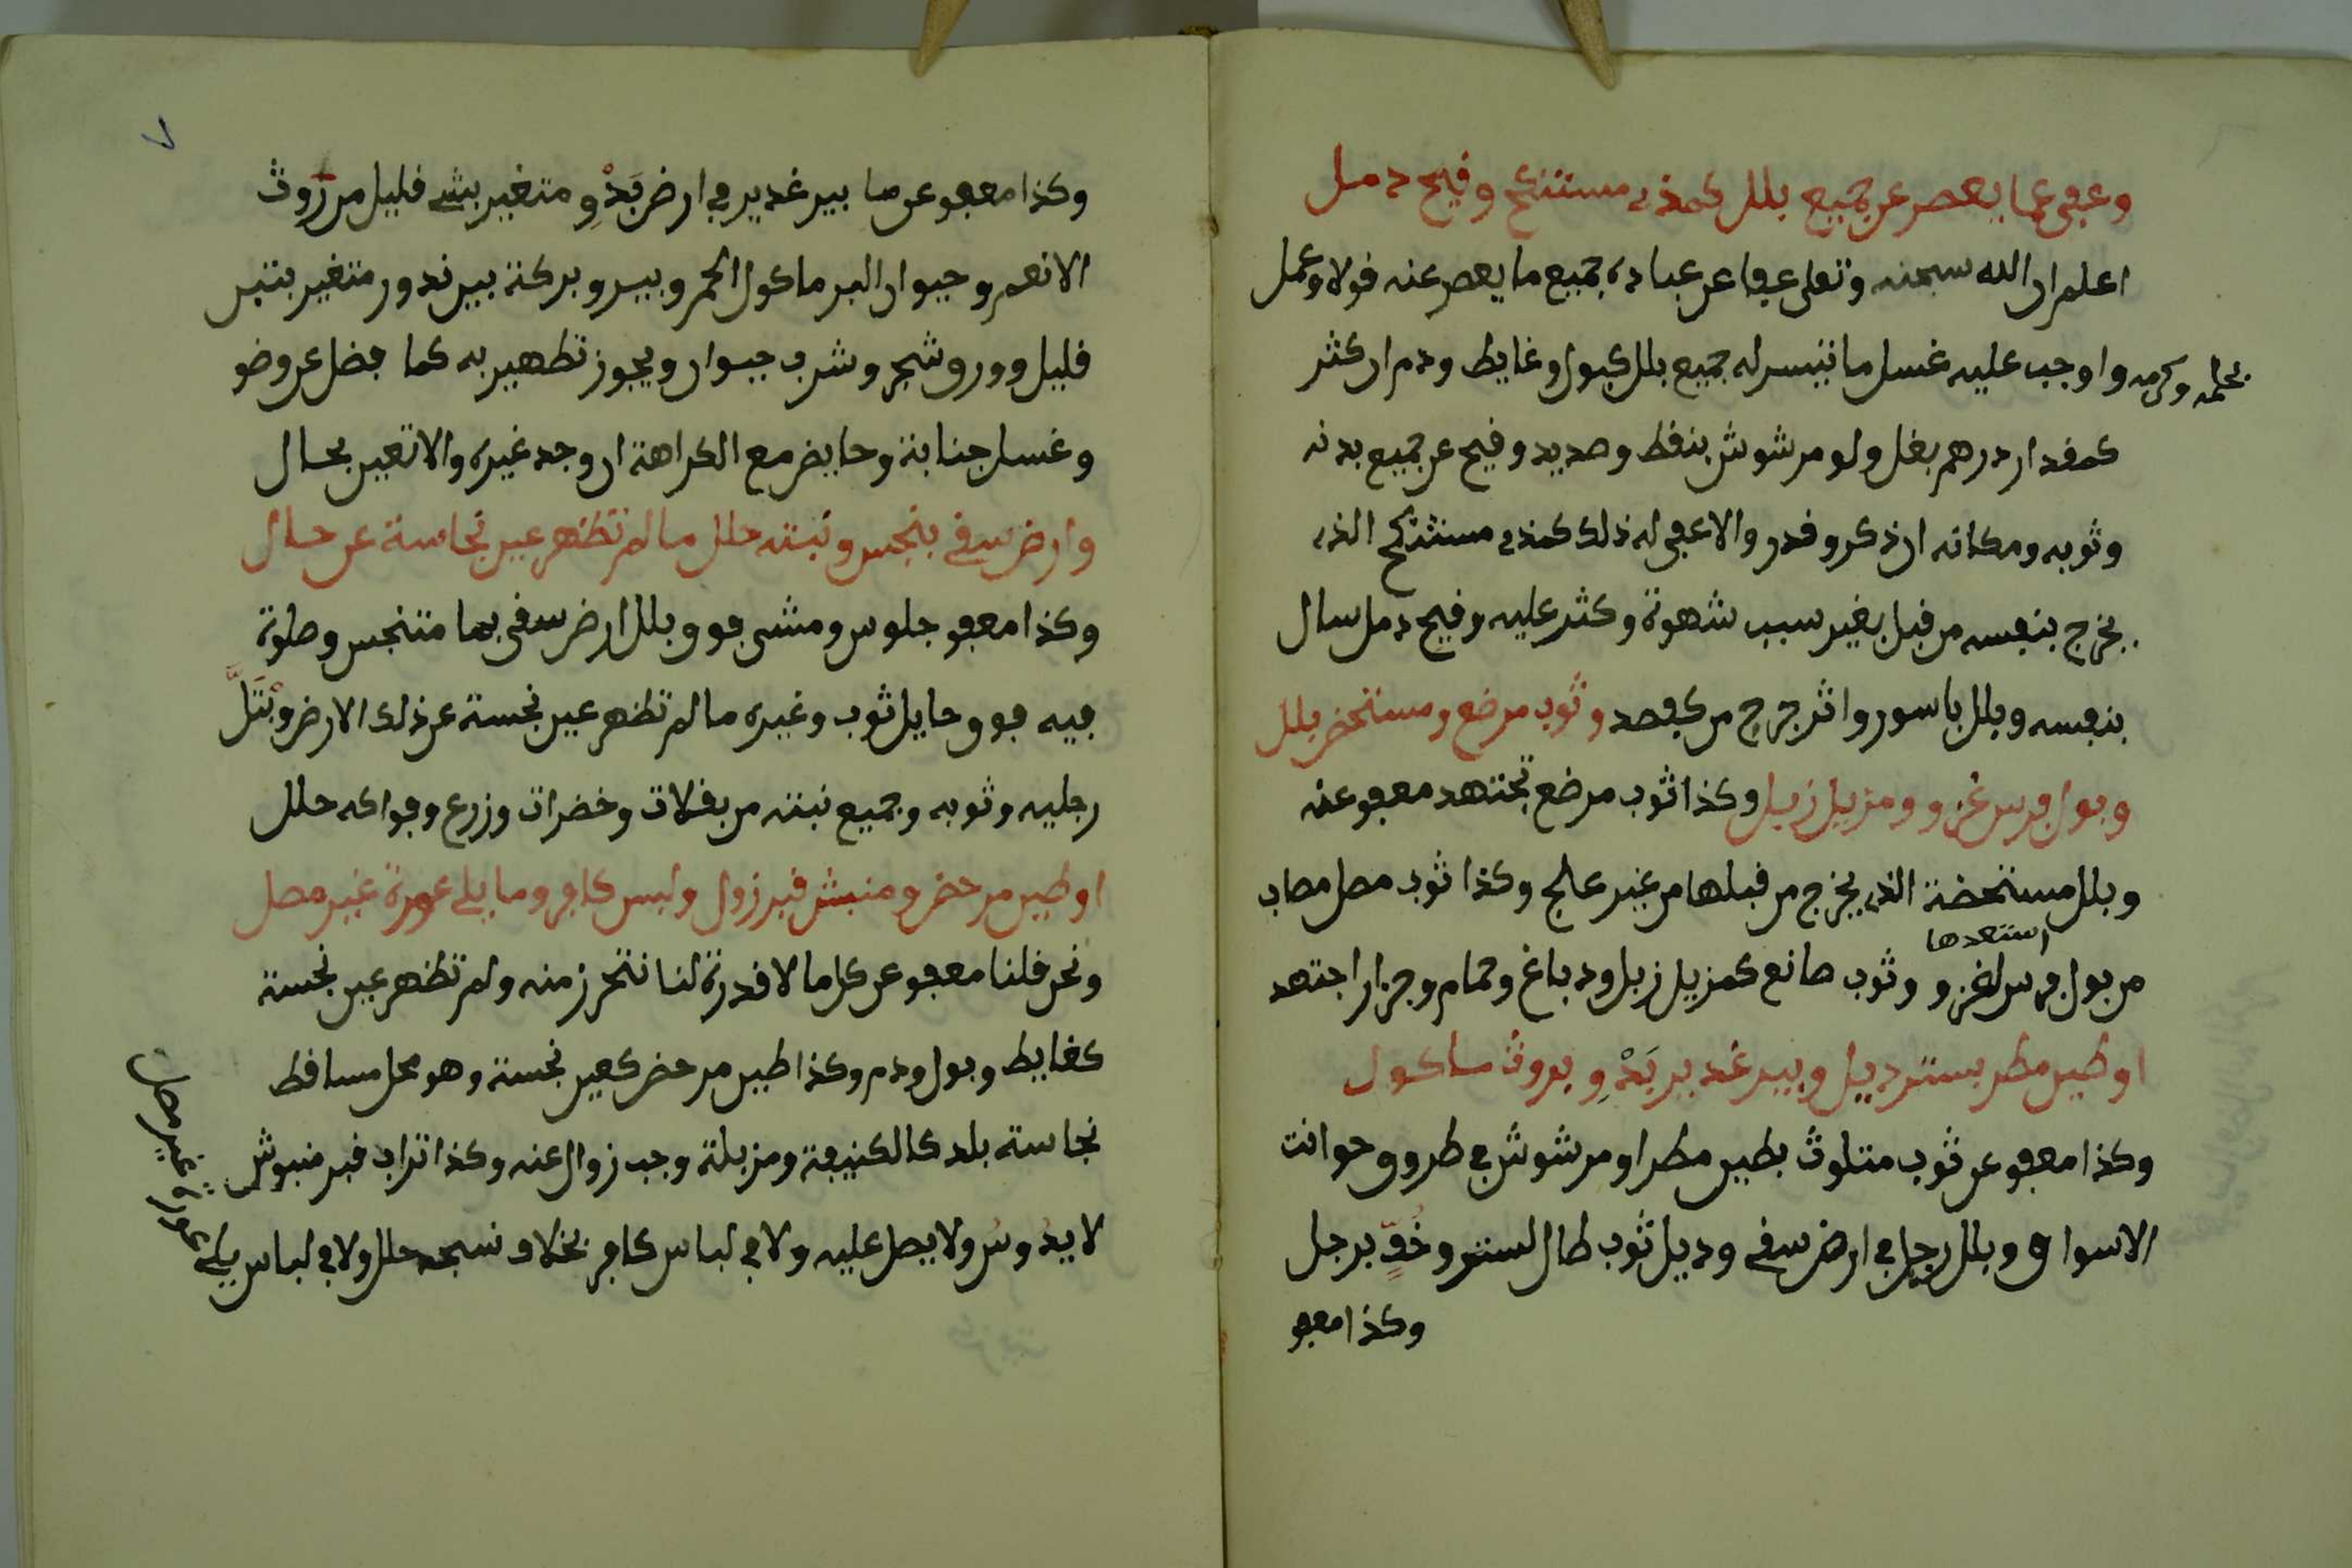 وعفى عما يعصر عن جميع بلل كمذي مستنكح وقيح دمل
اعلم ان الله سبحنه وتعلى عفا عن عباده جميع ما يعصر عنه قولا وعمل
بحلمه وكرمه واوجب عليه غسل ما تيسر له جميع بلل كبول وغايط ودم ان كثر
كمقدار درهم بغل ولو مرشوش بنقط وصديد وقيح عن جميع بدنه
وثوبه ومكانه ان ذكر وقدر والا عفى له ذلك كمذي مستنكح الذي
يخرج بنفسه من قبل بغير سبب شهوة وكثر عليه وقيح دمل سال
بنفسه وبلل باسور واثر جرح من كفصد وثوب مرضع ومستحض بلل
وبول فرس غزو ومزبل زبل وكذا ثوب مرضع تجتهد معفو عنه
وبلل مستحضة الذي يخرج من قبلها من غير علج وكذا ثوب مصل مصاب
استعدها
من بول فرس لغزو وثوب صانع كمزبل زبل ودباغ وحمام وجزار اجتهد
او طين مطر بستر ديل وبير غدير بَدْوِ وبروث ماكول
وكذا معفو عن ثوب متلوث بطين مطر او مرشوش في طروق حوانت
الاسواق وبلل رجل في ارض سقى وديل ثوب طال لستر وخُفٍّ برجل
وكذا معفو
٧
وكذا معفو عن ما بير غدير في ارض بَدْوِ ومتغير بشى قليل من رَوث
الانعم وحيوان البر ماكول الحمر وبير وبركة بير ندور متغير بتبن
قليل وورق شجر وشرب حيوان ويجوز تطهير به كما فضل عن وضو
وغسل جنابة وحايض مع الكراهة ان وجد غيره والا تعين بحال
وارض سقى بنجس ونبته حلل ما لم تظهر عين نجاسة عن حال
وكذا معفو جلوس ومشى فوق بلل ارض سقى بما متنجس وصلوة
فيه فوق حايل ثوب وغيره ما لم تظهر عين نجسة عن ذلك الارض وبْتَلَّ
رجليه وثوبه وجميع نبته من بقلات وخضرات وزرع وفواكه حلل
او طين مرحض ومنبش قبر زول ولبس كافر وما يلى عورة غير مصل
ونحن قلنا معفو عن كل ما لا قدرة لنا نتحرز منه ولم تظهر عين نجسة
كغايط وبول ودم وكذا طين مرحض كعين نجسة وهو محل مساقط
نجاسة بلد كالكنيفة ومزبلة وجب زوال عنه وكذا تراب قبر منبوش
لا يدُوسُ ولا يصل عليه ولا في لباس كافر بخلاف نسجه حلل ولا في لباس يلى
عورة غير مصل